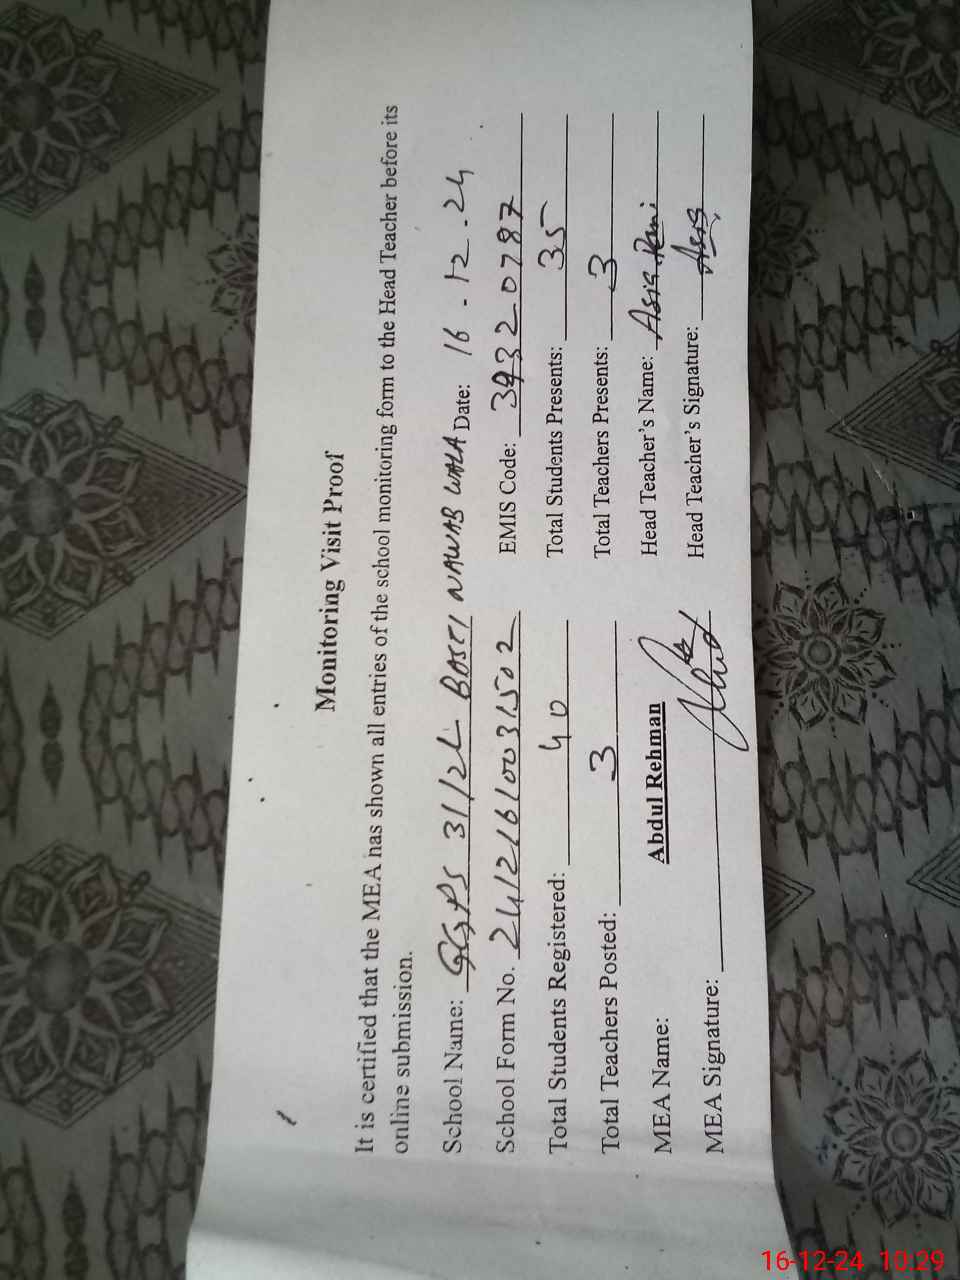 Monitoring Visit Proof
It is certified that the MEA has shown all entries of the school monitoring form to the Head Teacher before its
online submission.
School Name: GGPS 31/2L BASTI NAWAB WALA Date: 16-12-24
School Form No. 24121610031502 EMIS Code: 39320787
Total Students Registered: 40 Total Students Presents: 35
Total Teachers Posted: 3 Total Teachers Presents: 3
MEA Name: Abdul Rehman Head Teacher's Name: Asia Rani
MEA Signature: Head Teacher's Signature: Asia
16-12-24 10:29